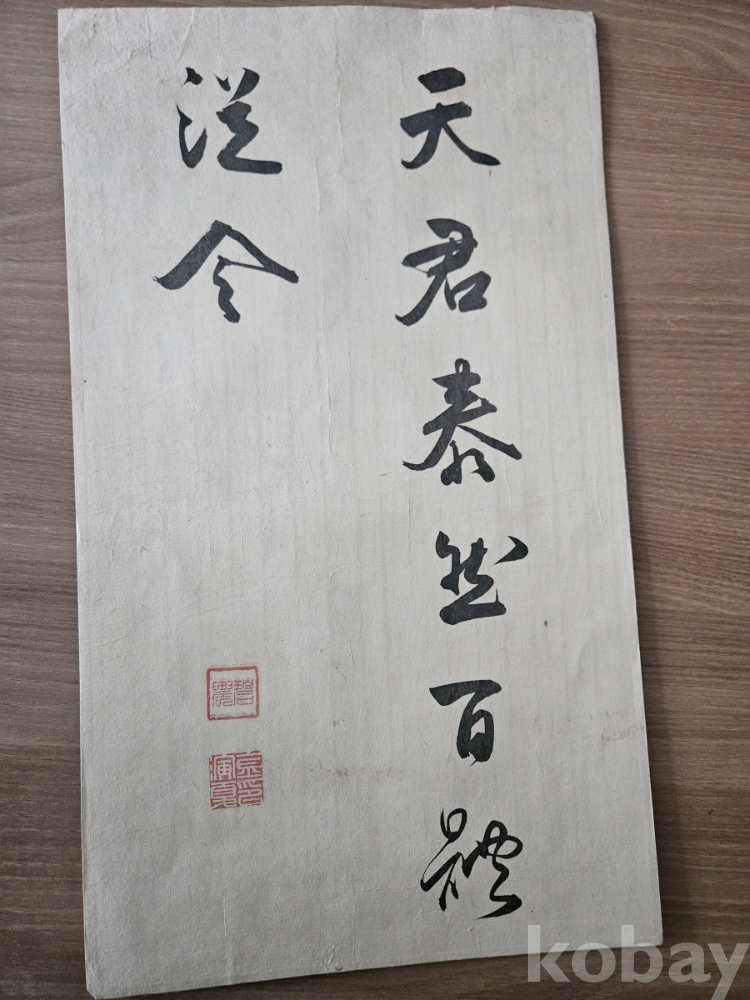 天君泰然百體
從令
kobay